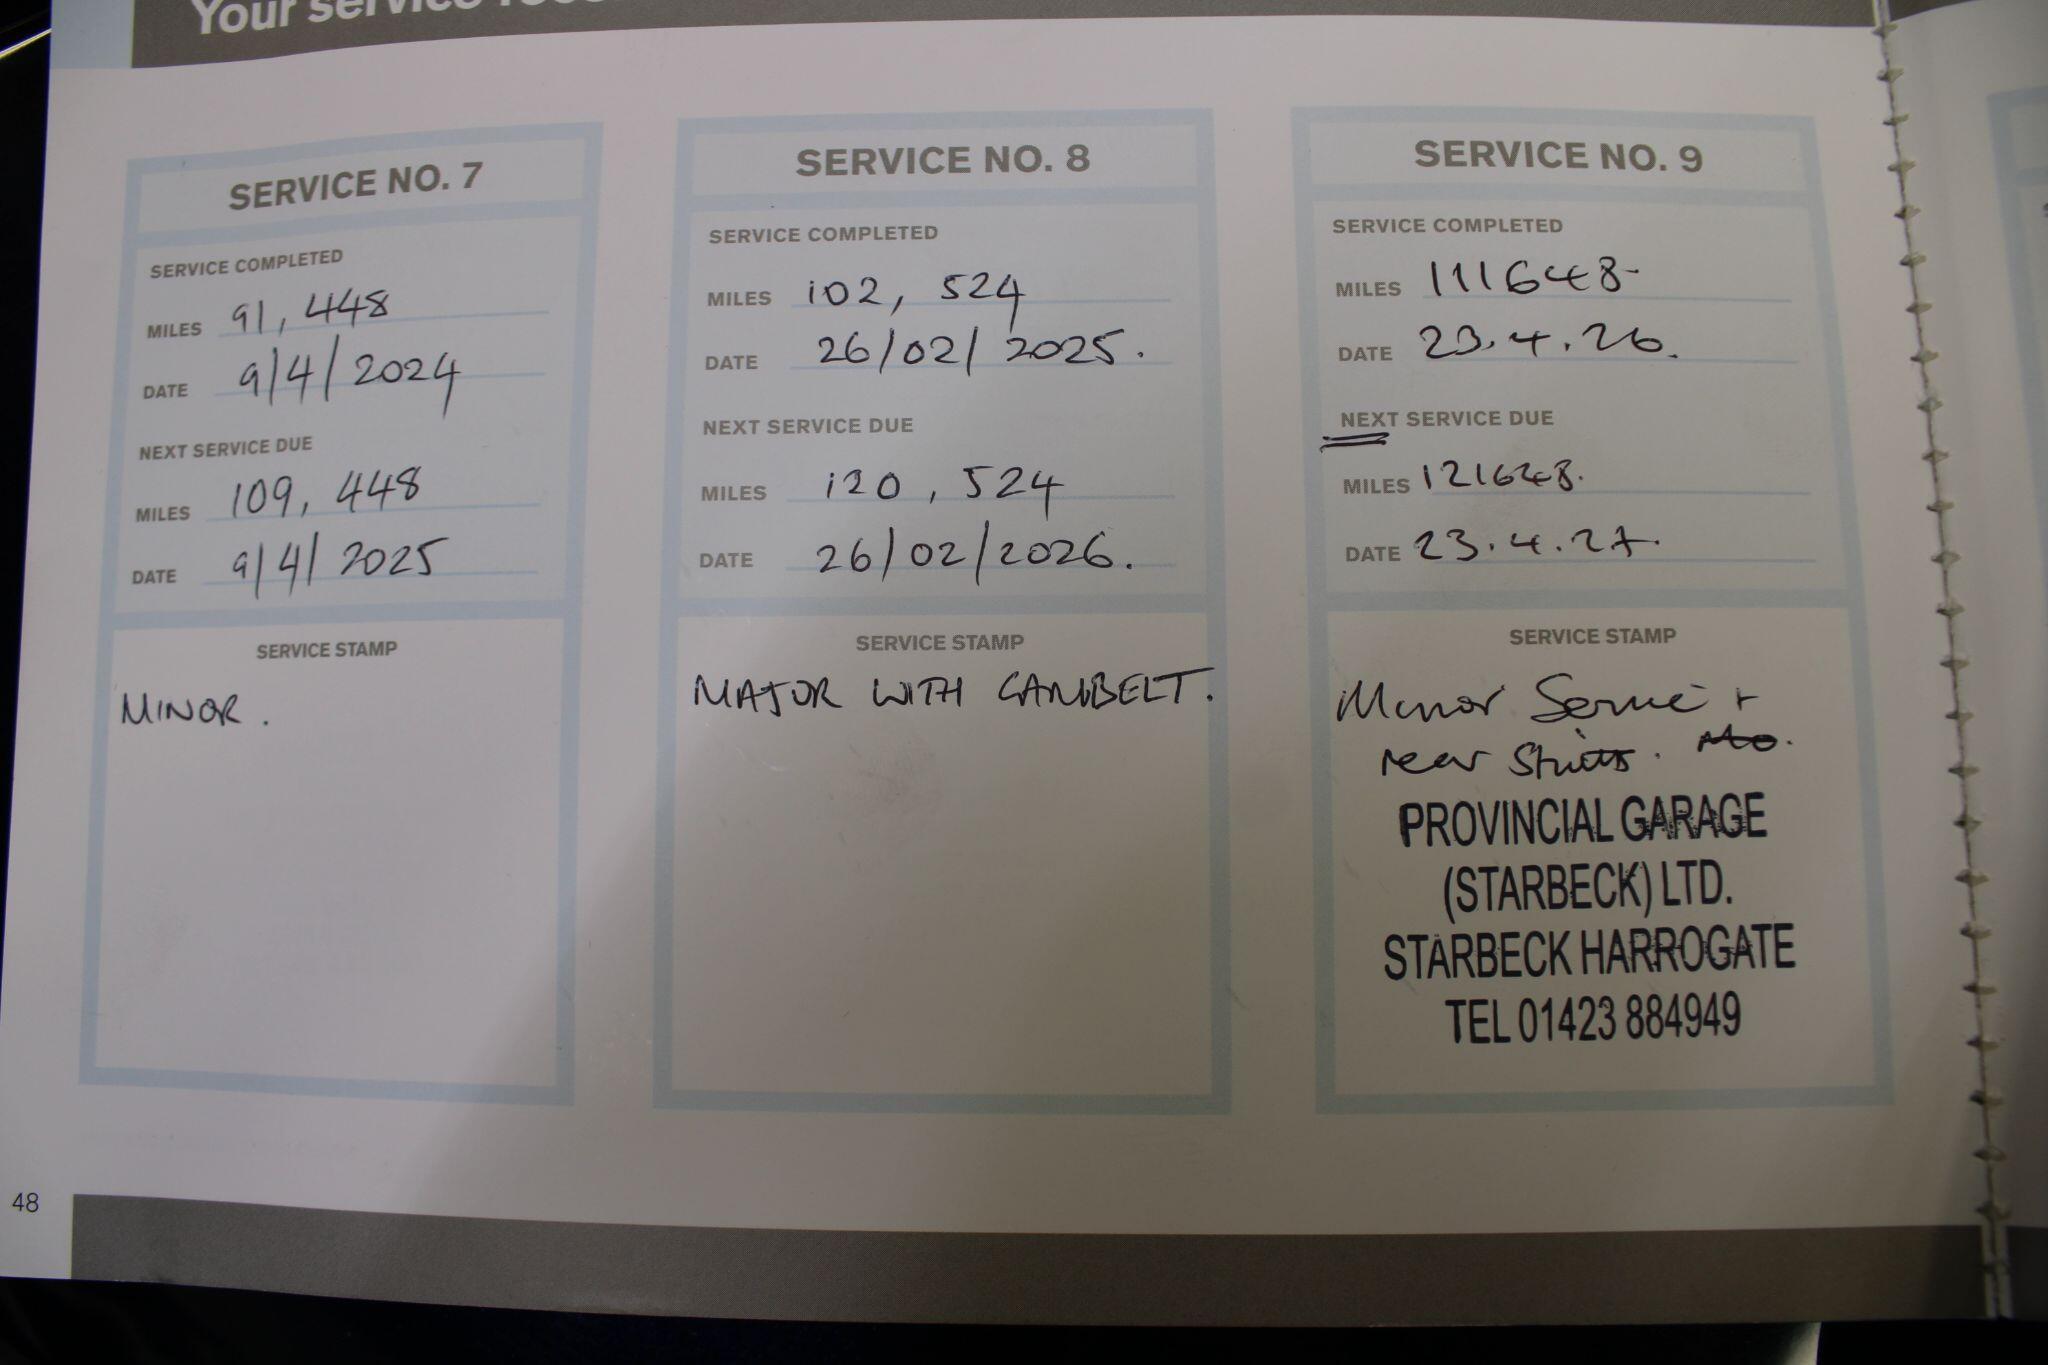 Your service
SERVICE NO. 7
SERVICE COMPLETED
MILES 91,448
DATE 9/4/2024
NEXT SERVICE DUE
MILES 109,448
DATE 9/4/2025
SERVICE STAMP
MINOR.
SERVICE NO. 8
SERVICE COMPLETED
MILES 102,524
DATE 26/02/2025.
NEXT SERVICE DUE
MILES 120,524
DATE 26/02/2026.
SERVICE STAMP
MAJOR WITH CAMBELT.
SERVICE NO. 9
SERVICE COMPLETED
MILES 111648-
DATE 23.4.26.
NEXT SERVICE DUE
MILES 121648.
DATE 23.4.27.
SERVICE STAMP
Minor Service +
rear Struts.
PROVINCIAL GARAGE
(STARBECK) LTD.
STARBECK HARROGATE
TEL 01423 884949
48